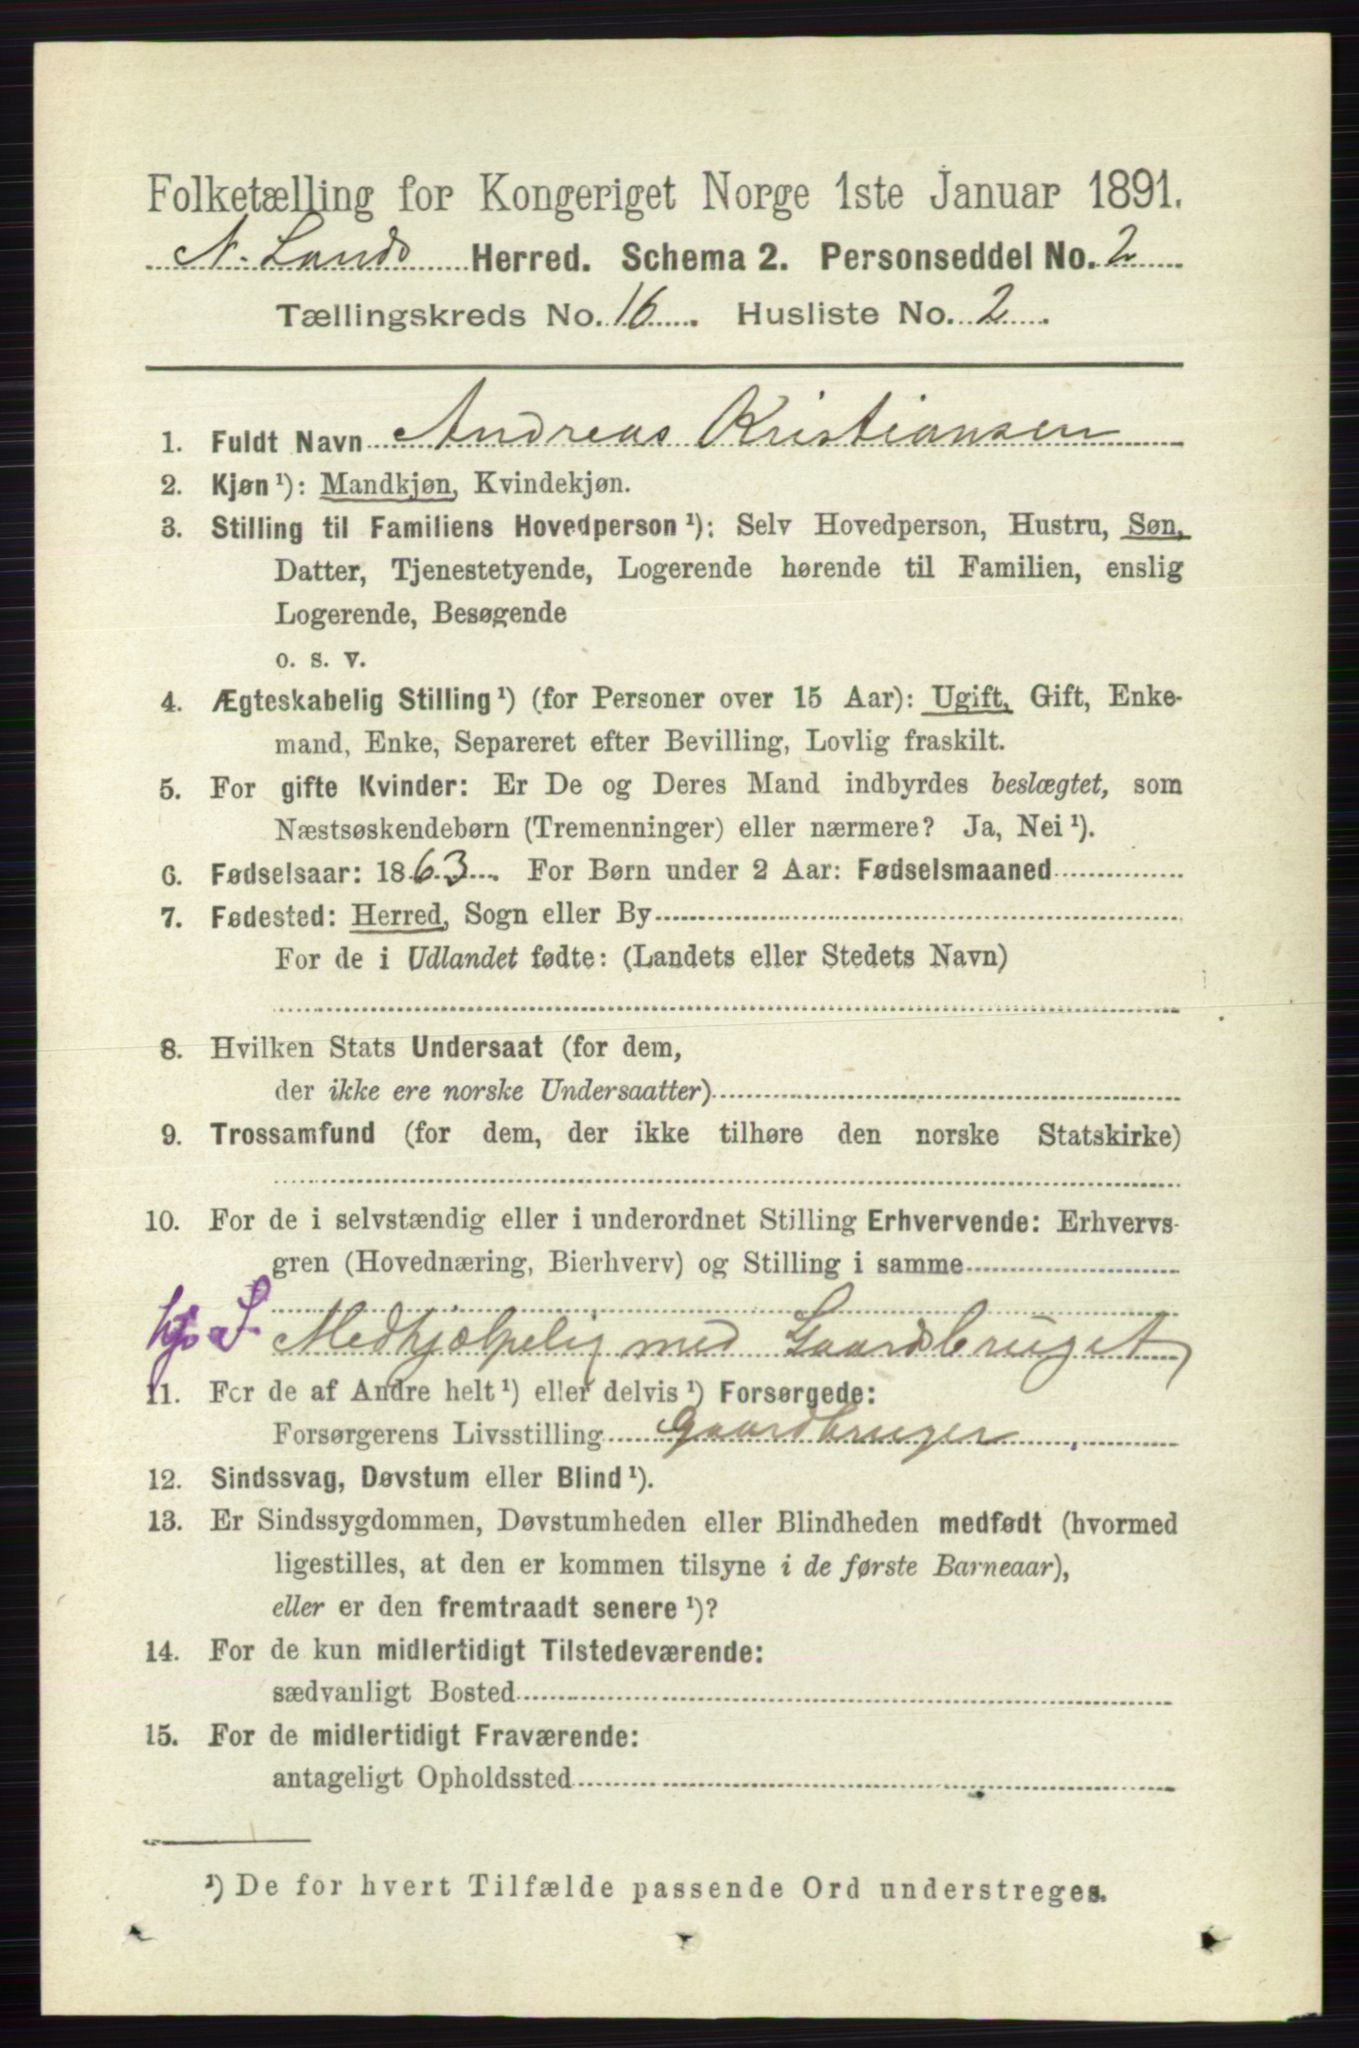 Folketælling for Kongeriget Norge 1ste Januar 1891.
N. Lands Herred. Schema 2. Personseddel No. 2
Tællingskreds No. 16. Husliste No. 2
1. Fuldt Navn Andreas Kristiansen
2. Kjøn¹): Mandkjøn, Kvindekjøn.
3. Stilling til Familiens Hovedperson¹): Selv Hovedperson, Hustru, Søn,
Datter, Tjenestetyende, Logerende hørende til Familien, enslig
Logerende, Besøgende
o. s. v.
4. Ægteskabelig Stilling¹) (for Personer over 15 Aar): Ugift, Gift, Enke-
mand, Enke, Separeret efter Bevilling, Lovlig fraskilt.
5. For gifte Kvinder: Er De og Deres Mand indbyrdes beslægtet, som
Næstsøskendebørn (Tremenninger) eller nærmere? Ja, Nei¹).
6. Fødselsaar: 1863. For Børn under 2 Aar: Fødselsmaaned
7. Fødested: Herred, Sogn eller By
For de i Udlandet fødte: (Landets eller Stedets Navn)
8. Hvilken Stats Undersaat (for dem,
der ikke ere norske Undersaatter)
9. Trossamfund (for dem, der ikke tilhøre den norske Statskirke)
10. For de i selvstændig eller i underordnet Stilling Erhvervende: Erhvervs-
gren (Hovednæring, Bierhverv) og Stilling i samme
Medhjælpelig med Gaardsbruget
11. For de af Andre helt¹) eller delvis¹) Forsørgede:
Forsørgerens Livsstilling Gaardbruger
12. Sindssvag, Døvstum eller Blind¹).
13. Er Sindssygdommen, Døvstumheden eller Blindheden medfødt (hvormed
ligestilles, at den er kommen tilsyne i de første Barneaar),
eller er den fremtraadt senere¹)?
14. For de kun midlertidigt Tilstedeværende:
sædvanligt Bosted
15. For de midlertidigt Fraværende:
antageligt Opholdssted
¹) De for hvert Tilfælde passende Ord understreges.